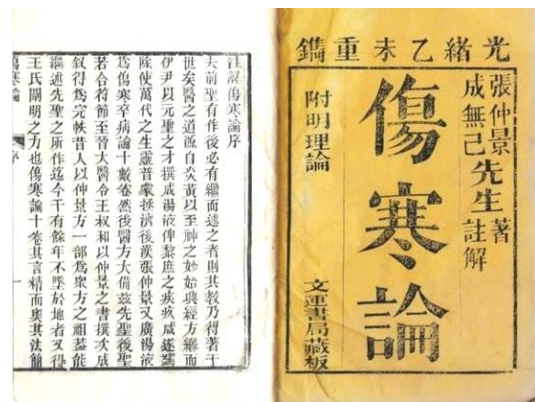 光緒乙未重鐫
張仲景
成無己先生
著
註解
傷寒論
附明理論
文運書局藏板
注解傷寒論序
夫前聖有作後必有繼而述之者則其教乃得著于
世矣醫之道源自炎黃以至神之妙始興經方繼而
伊尹以元聖之才撰成湯液俾黎庶之疾疚咸遂蠲
除使萬代之生靈普蒙拯濟後漢張仲景又廣湯液
為傷寒卒病論十數卷然後醫方大備茲先聖後聖
若合符節至晉太醫令王叔和以仲景之書撰次成
敘得為完帙昔人以仲景方一部為眾方之祖蓋能
繼述先聖之所作迄今千有餘年不墜於地者又得
王氏闡明之力也傷寒論十卷其言精而奧其法簡
傷寒論 序 一